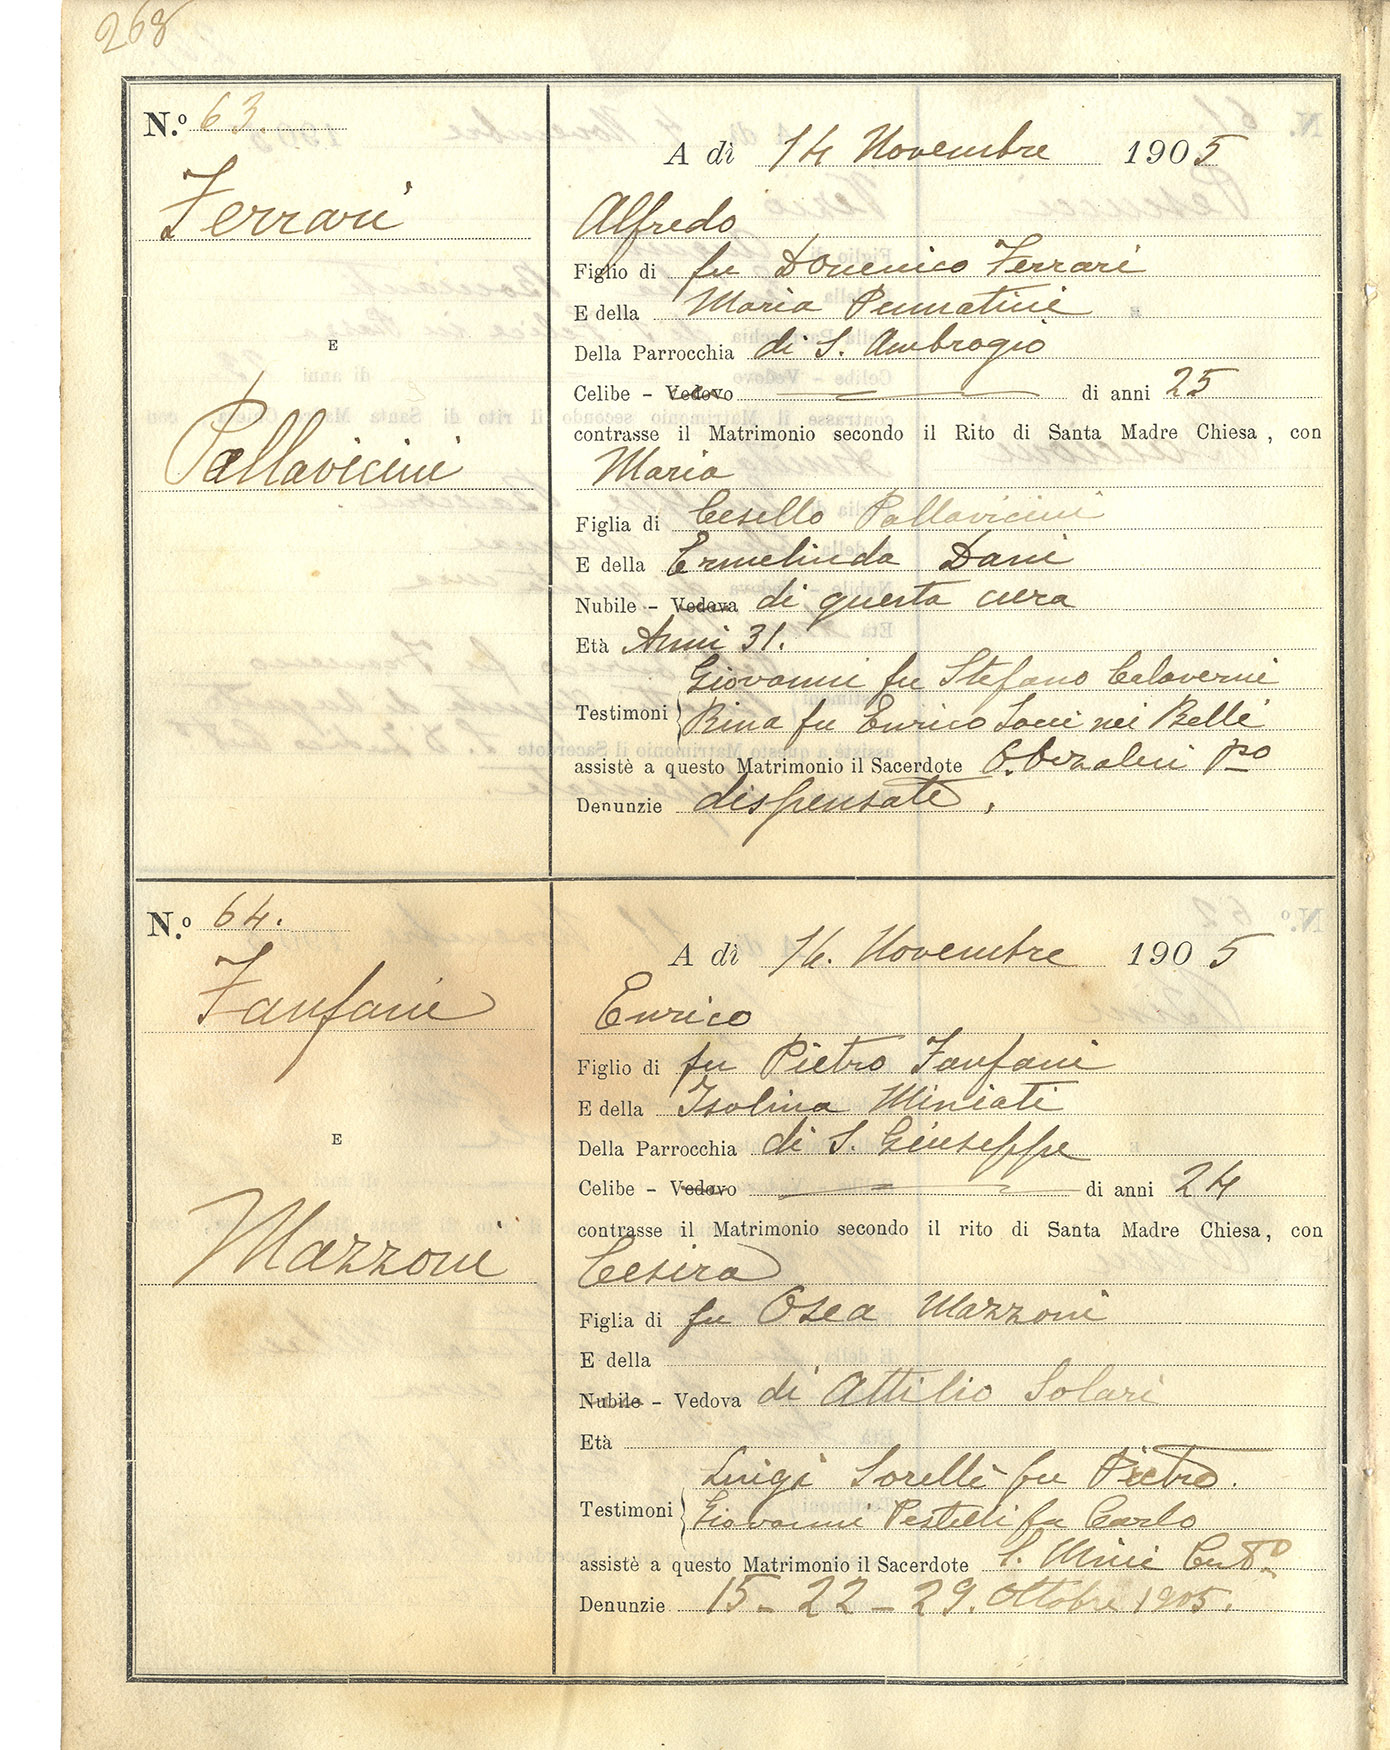 268
N.º 63.
A dì 14 Novembre 1905
Ferrari
Alfredo
Figlio di fu Domenico Ferrari
E della Maria Pennatini
E
Della Parrocchia di S. Ambrogio
Celibe - Vedovo di anni 25
contrasse il Matrimonio secondo il Rito di Santa Madre Chiesa, con
Pallavicini
Maria
Figlia di Cesello Pallavicini
E della Ermelinda Dani
Nubile - Vedova di questa cura
Età Anni 31.
Giovanni fu Stefano Calaverni
Testimoni
Rina fu Enrico Soni nei Belli
assistè a questo Matrimonio il Sacerdote
Denunzie dispensate.
N.º 64.
A dì 14. Novembre 1905
Fanfani
Enrico
Figlio di fu Pietro Fanfani
E della Isolina Miniati
E
Della Parrocchia di S. Giuseppe
Celibe - Vedovo di anni 24
contrasse il Matrimonio secondo il rito di Santa Madre Chiesa, con
Mazzoni
Cesira
Figlia di fu Osea Mazzoni
E della
Nubile - Vedova di Attilio Solari
Età
Luigi Sorelli fu Pietro.
Testimoni
Giovanni Pestelli fu Carlo
assistè a questo Matrimonio il Sacerdote S. Mini
Denunzie 15 - 22 - 29. Ottobre 1905.